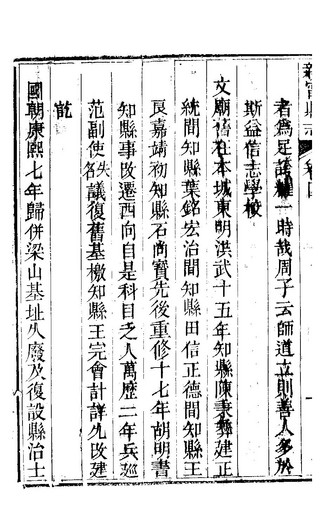 新寧縣志 卷四
者為足誇耀一時哉周子云師道立則善人多於
斯益信志學校
文廟舊在本城東明洪武十五年知縣陳秉彝建正
統間知縣葉銘宏治間知縣田信正德間知縣王
良嘉靖初知縣石尚寶先後重修十七年胡明書
知縣事改遷西向自是科目乏人萬歷二年兵巡
范副使名失議復舊基檄知縣王完會計詳允改建
訖
國朝康熙七年歸併梁山基址久廢及復設縣治士